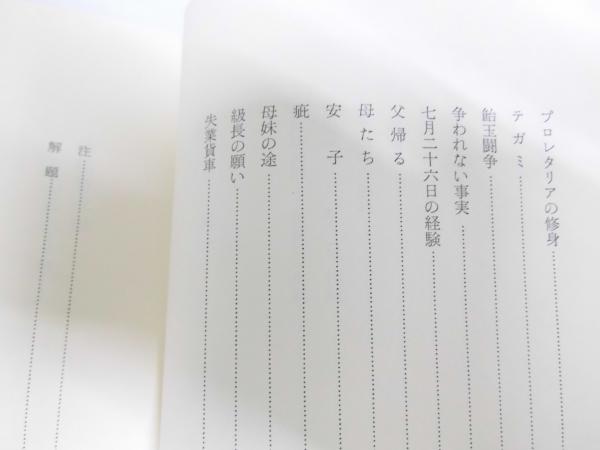 プロレタリアの修身
テガミ
飴玉闘争
争われない事実
七月二十六日の経験
父帰る
母たち
安子
疵
母妹の途
級長の願い
失業貨車
注
解題